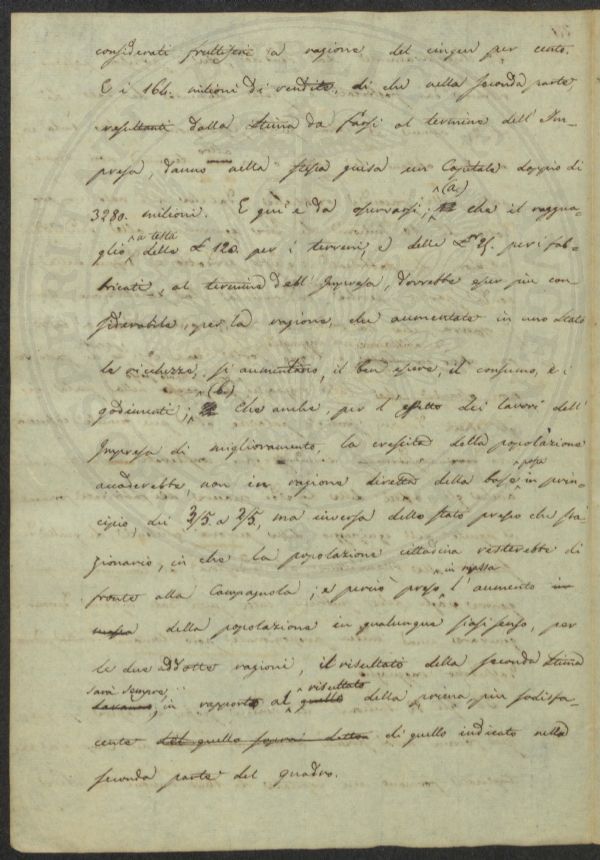 considerati fruttiferi a ragione del cinque per cento.
E i 164. milioni di rendite, di che nella seconda parte,
resultanti dalla Stima da farsi al termine dell'Im-
presa, danno nella stessa guisa un Capitale doppio di
3280. milioni. E quì è da osservarsi; (a) che il raggua-
glio a testa delle £ 120. per i terreni, e delle £ 25. per i fab-
bricati, al termine dell'Impresa, dovrebbe esser più con-
siderabile, per la ragione, che aumentate in uno Stato
le ricchezze, si aumentano, il ben essere, il consumo, e i
godimenti; (b) Che anche, per l'effetto dei lavori dell'
Impresa di miglioramento, la crescita della popolazione
accaderebbe, non in ragione diretta della base posta in prin-
cipio, dei 3/5. a 2/5, ma inversa dello stato presso che sta-
zionario, in che la popolazione cittadina resterebbe di
fronte alla Campagnola; e perciò preso in massa l'aumento in
massa della popolazione in qualunque siasi senso, per
le due addotte ragioni, il risultato della seconda Stima
sarà sempre, in rapporto al quello risultato della prima, più sodisfa-
cente del quello sopra detto di quello indicato nella
seconda parte del quadro.